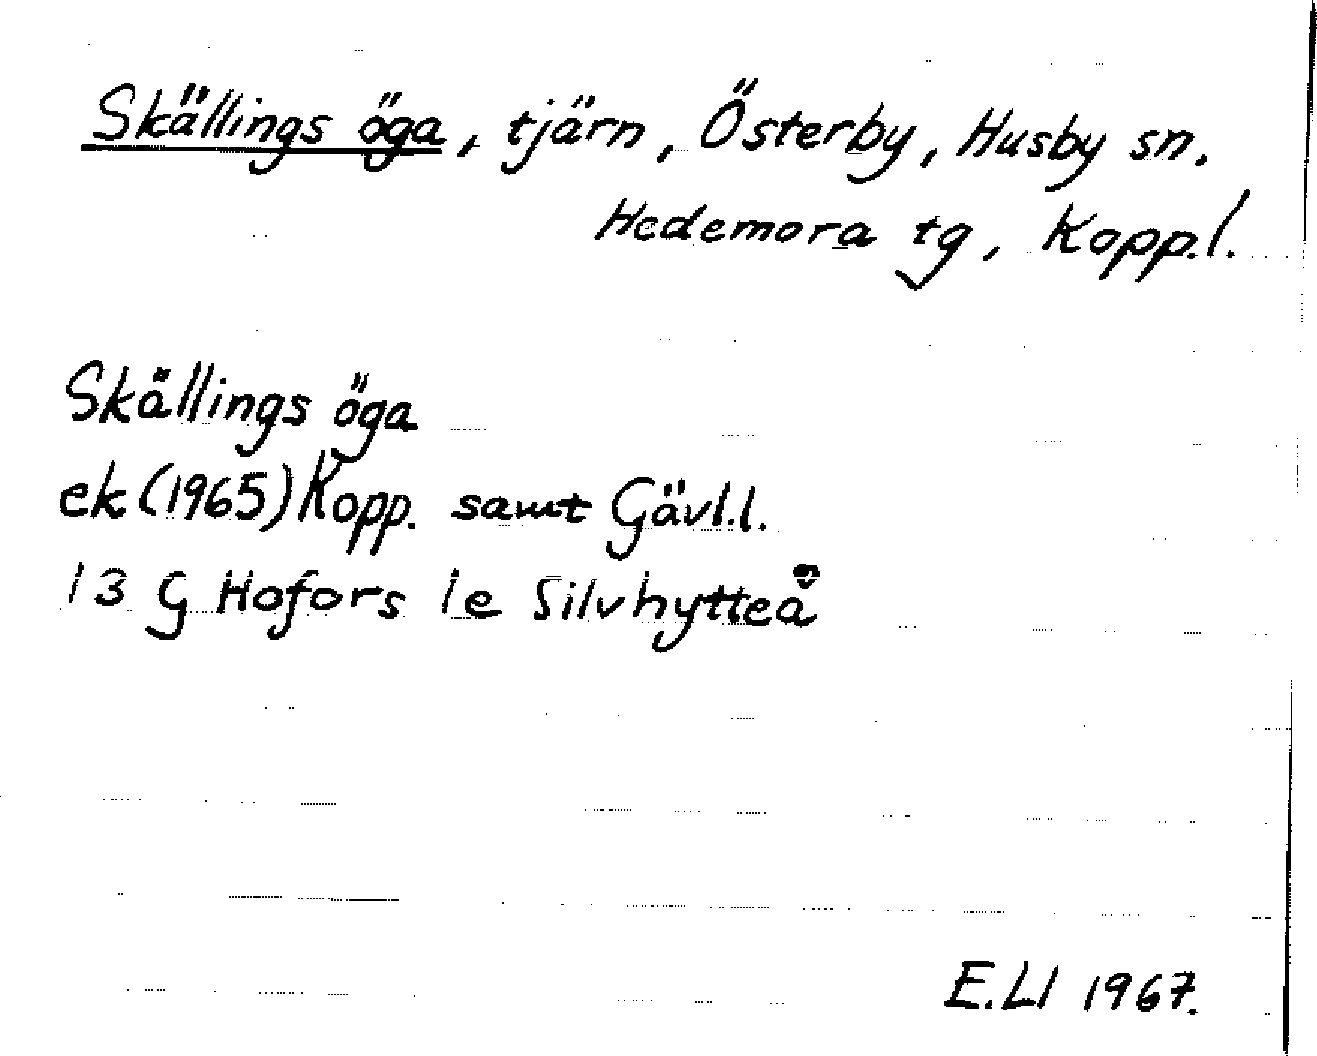 Skällings öga, tjärn, Österby, Husby sn.
Hedemora tg, Kopp.l.
Skällings öga
ek (1965) Kopp. samt Gävl.l.
13 G Hofors 1e Silvhytteå
E.Ll 1967.